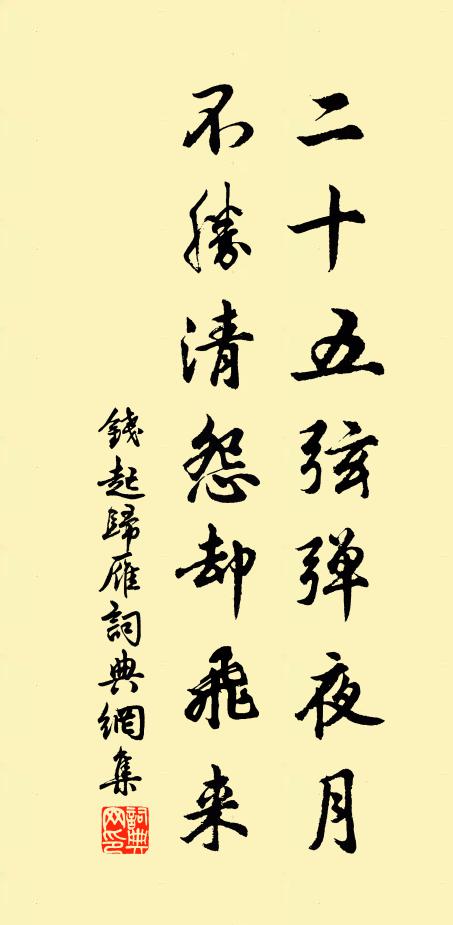 二十五弦弹夜月
不勝清怨却飛来
錢起歸雁詞典網集
詞典网印